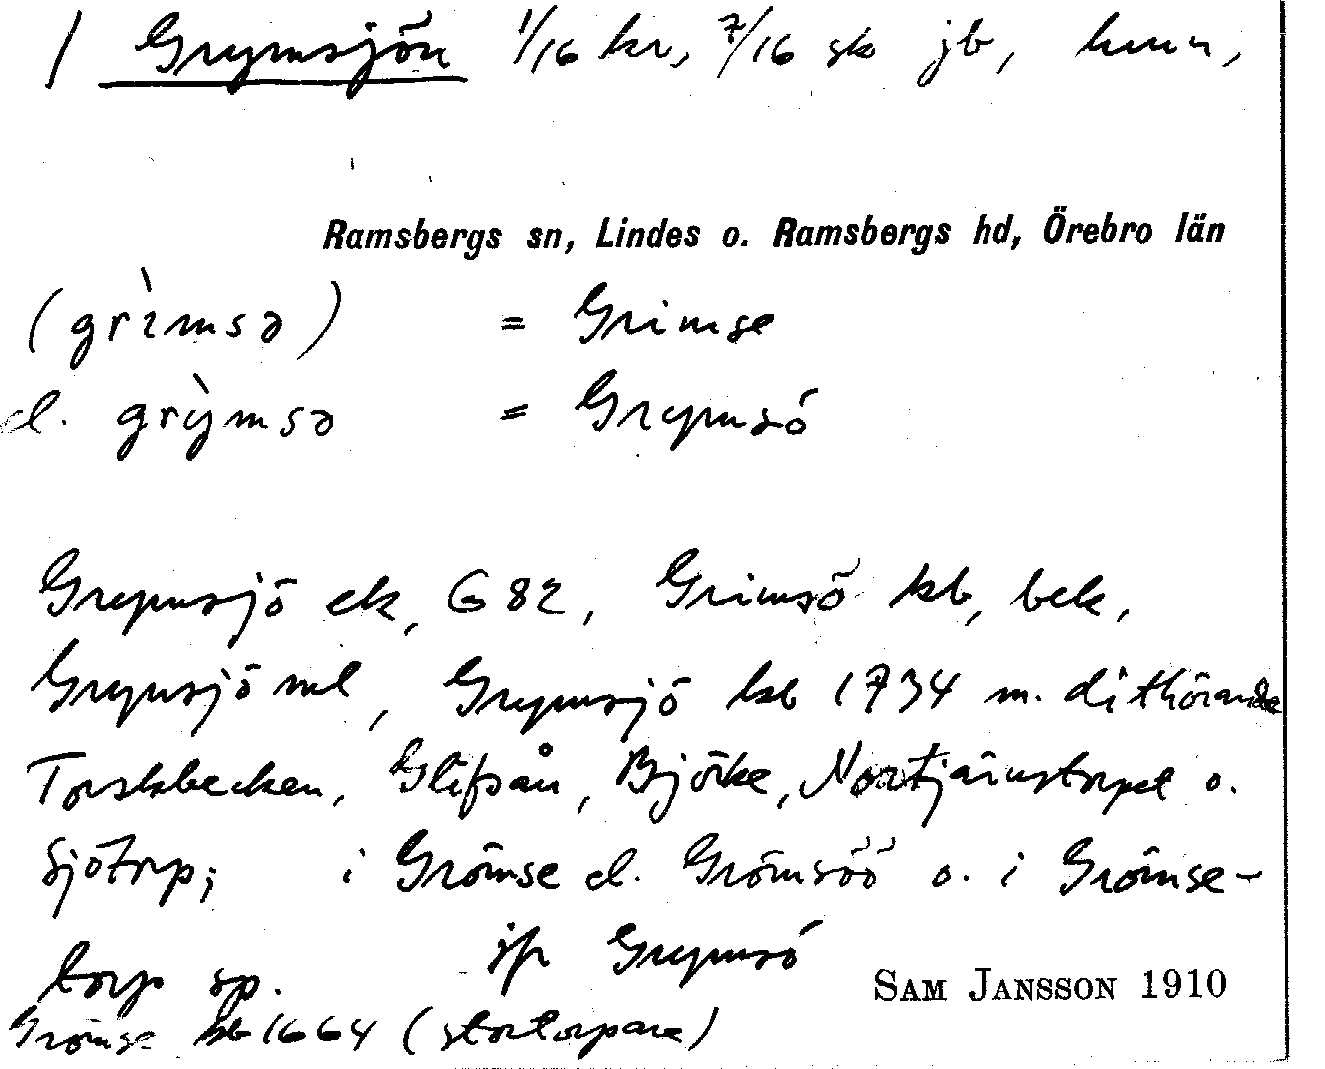 / Grymsjön 1/16 kr, 7/16 sk jb, hmn,
Ramsbergs sn, Lindes o. Ramsbergs hd, Örebro län
(grìmsə) = Grimse
el. grỳmsə = Grymsö
Grymsjö ek, G 82, Grimsö kb, bek,
Grymsjö ml, Grymsjö kb 1734 m. dithörande
Torskbecken, Glifsån, Björke, Nortjärnstorpet o.
Sjötrp; i Grömse el. Grömsöö o. i Grömse-
torp sp. jfr Grymsö
SAM JANSSON 1910
Grömse kb 1664 (stortorpare)